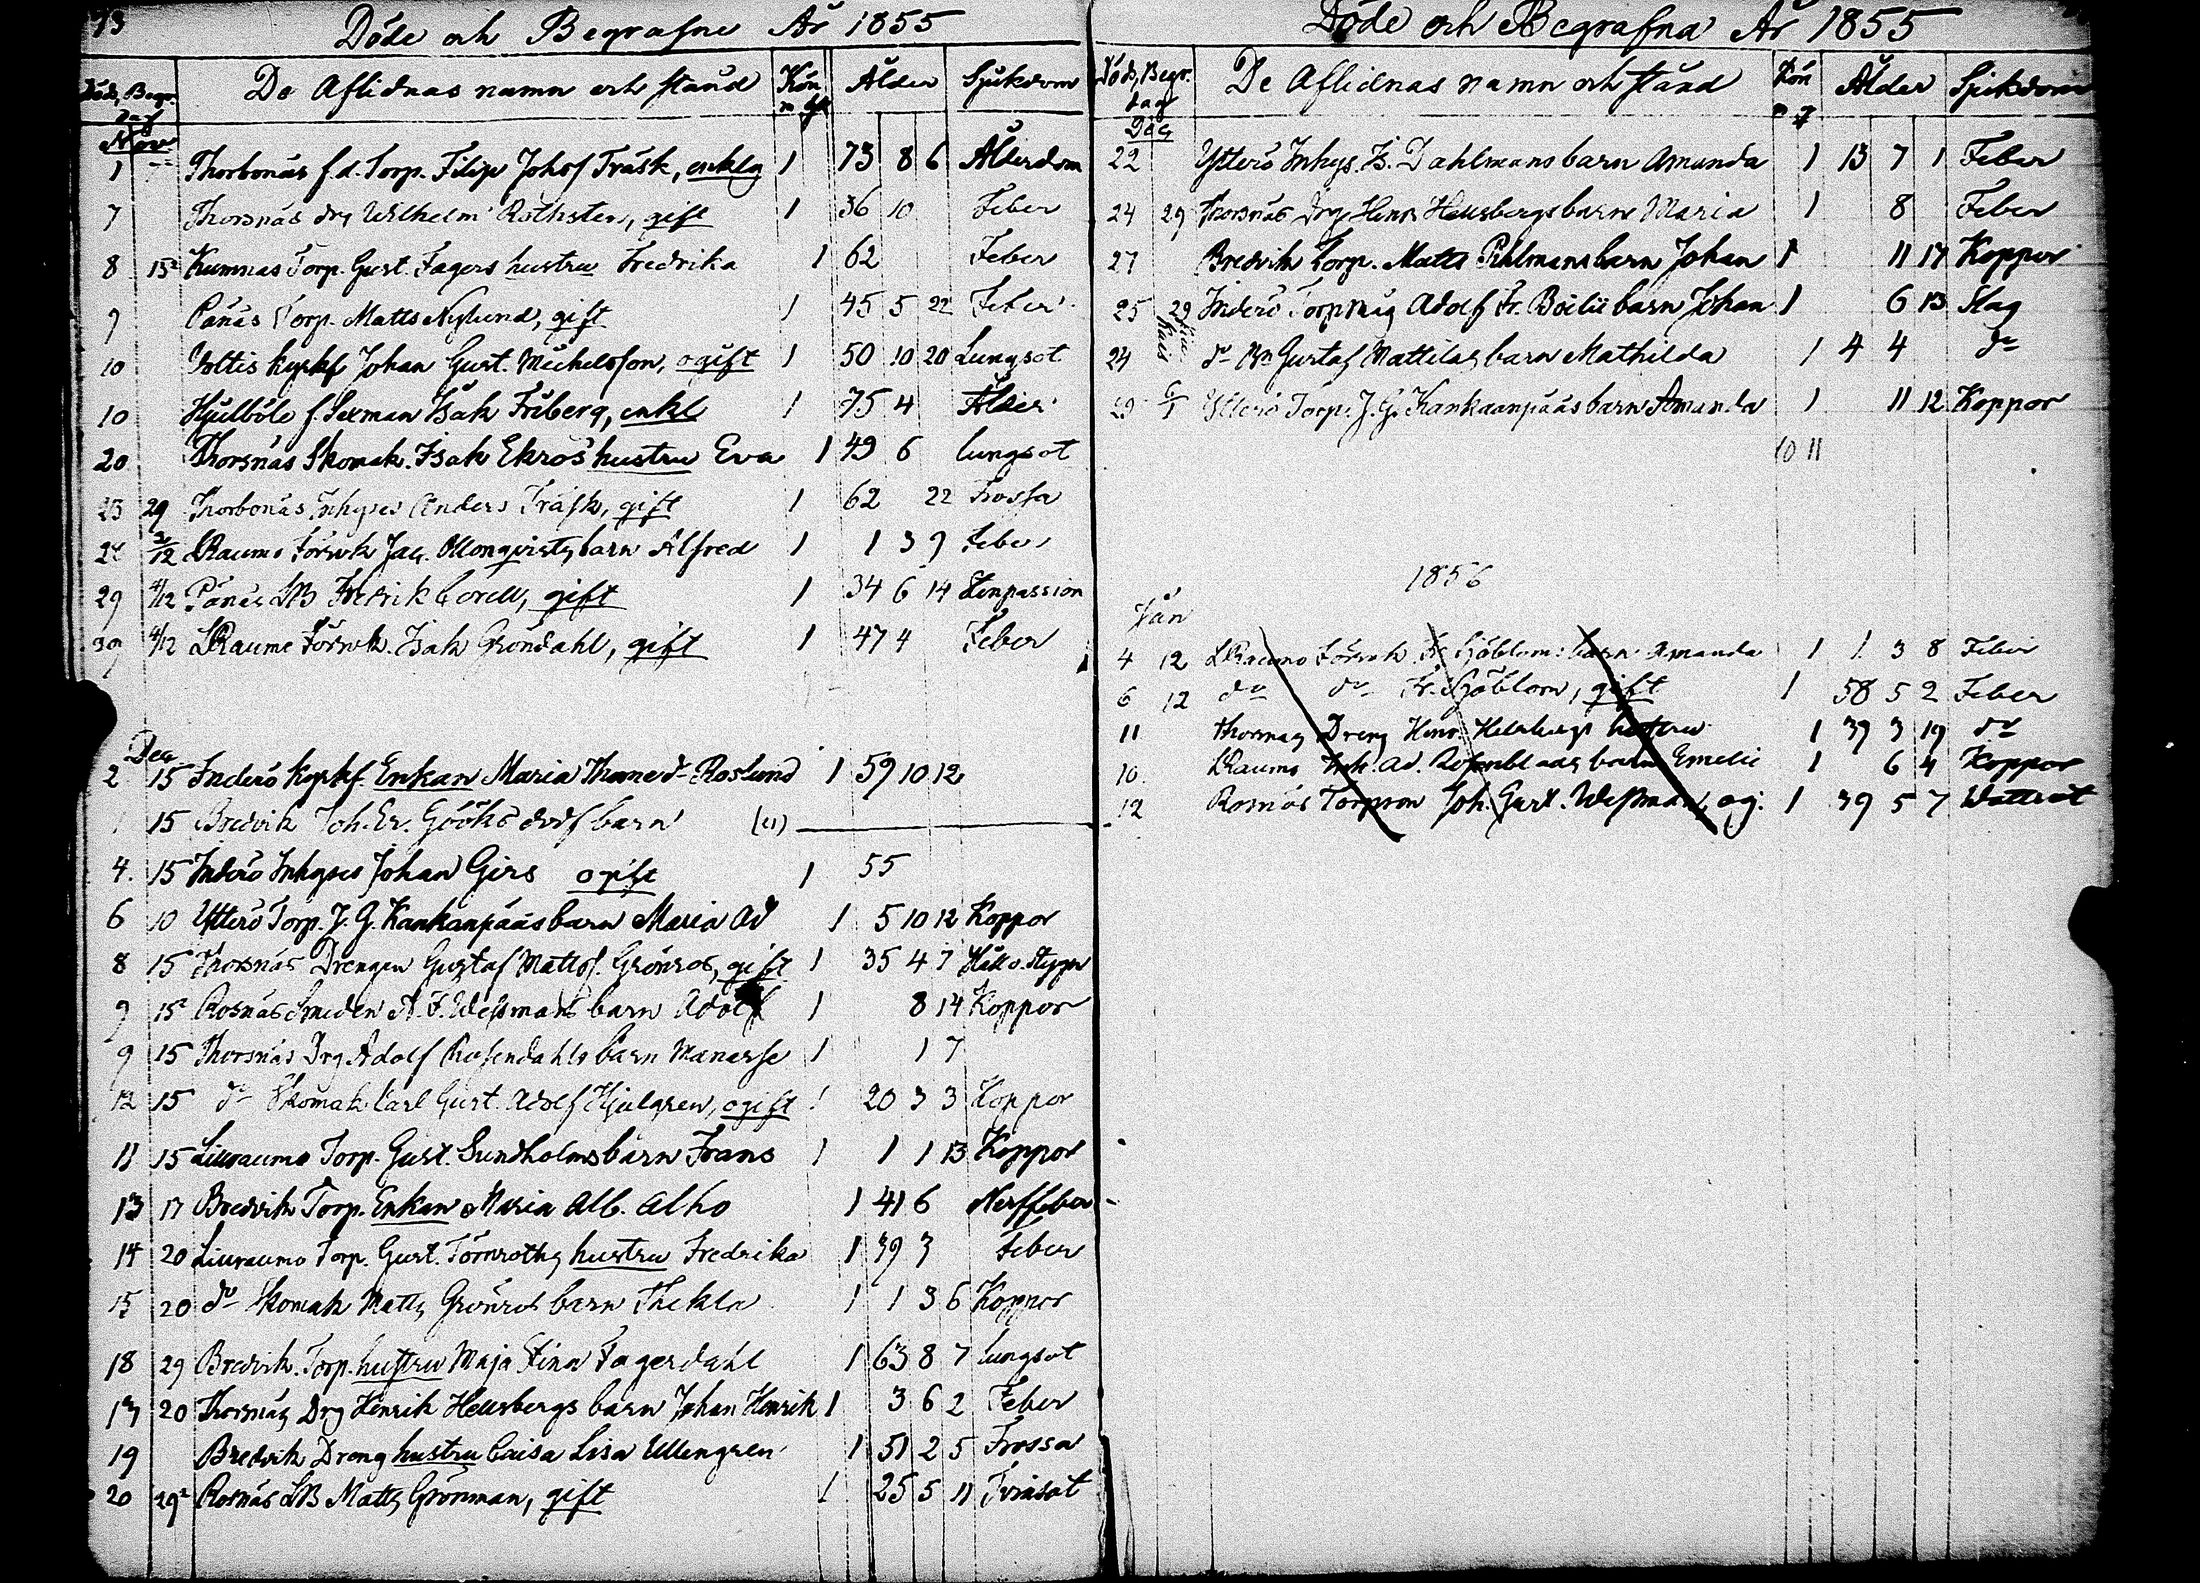 73
Döde och Begrafne År 1855
Död, Begr. dag De Aflidnas namn och stånd Kön m q Ålder Sjukdom
Nov.
1 Thorbonäs f.d. Torp. Filip Johsf Träsk, enklg 1 73 8 6 Ålderdom
7 Thorsnäs drg Wilhelm Rothsten, gift 1 36 10 Feber
8 15 Kumnäs Torp. Gust. Fagers hustru Fredrika 1 62 Feber
9 Pänäs Torp. Matts Nylund, gift 1 45 5 22 Feber
10 Johan Gust. Michelsson, ogift 1 50 10 20 Lungsot
10 Hjulböle f. Sexman Isak Friberg, enkl 1 75 4 Ålder
20 Thorsnäs Skomak. Isak Ekros hustru Eva 1 49 6 lungsot
23 29 Thorbonäs Inhyses Anders Träsk, gift 1 62 22 Frossa
2/12 LRaumo barn Alfred 1 1 3 9 Feber
29 4/12 Pänäs LB Fredrik Corell, gift 1 34 6 14 Stenpassion
30 4/12 LRaumo Isak Gröndahl, gift 1 47 4 Feber
Dec
2 15 Inderö kyrkf. Enkan Maria Roslund 1 59 10 12
15 Bredvik Joh. Er. Gööks dödf barn
4 15 Inderö Inhyses Johan Girs ogift 1 55
6 10 Ytterö Torp. J. G. Kankanpääs barn Maria Ad 1 5 10 12 Koppor
8 15 Thorsnäs Drengen Gustaf Mattsf. Grönros, gift 1 35 4 7 Håll o. Stygn
9 15 Rosnäs Smeden A. F. Wessmans barn Adolf 1 8 14 Koppor
9 15 Thorsnäs Drg Adolf Rosendahls barn Manasse 1 1 7
12 15 do Skomak Carl Gust. Adolf Hjulgren, ogift 1 20 3 3 Koppor
11 15 Liuraumo Torp. Gust. Sundholms barn Frans 1 1 1 13 Koppor
13 17 Bredvik Torp. Enkan Maria Alb. Alho 1 41 6 Nerffeber
14 20 Liuraumo Torp. Gust. Törnroths hustru Fredrika 1 39 3 Feber
15 20 do Skomak Matts Grönros barn Thekla 1 1 3 6 Koppor
18 29 Bredvik Torp. hustru Maja Stina Fagerdahl 1 63 8 7 lungsot
17 20 Thorsnäs Drg Henrik Hellsbergs barn Johan Henrik 1 3 6 2 Feber
19 Bredvik Dreng hustru Caisa Lisa Ullengren 1 51 2 5 Frossa
20 29 Rosnäs LB Matts Grönman, gift 1 25 5 11 Tvinsot
Döde och Begrafna År 1855
Död, Begr. dag De Aflidnas namn och stånd Kön m q Ålder Sjukdom
Dec
22 Ytterö Inhys. Is. Dahlmans barn Amanda 1 13 7 1 Feber
24 29 Thorsnäs Drg Henr. Hellsbergs barn Maria 1 8 Feber
27 Bredvik Torp. Matts Pihlmans barn Johan 1 11 17 Koppor
25 29 Inderö Adolf Fr. barn Johan 1 6 13 Slag
24 do Gustaf Mattilas barn Mathilda 1 4 4 do
29 6/1 Ytterö Torp. J. G. Kankaanpääs barn Amanda 1 11 12 Koppor
10 11
1856
Jan
4 12 LRaumo Fr. Sjöbloms barn Amanda 1 1 3 8 Feber
6 12 do do Fr. Sjöblom, gift 1 58 5 2 Feber
11 Thorsnäs Dreng Henr. Hellsbergs hustru 1 39 3 19 do
10 LRaumo Inh. Ad. Rosenblads barn Emelie 1 6 4 Koppor
12 Rosnäs Torpson Joh. Gust. Wessman, og. 1 39 5 7 Wattsot